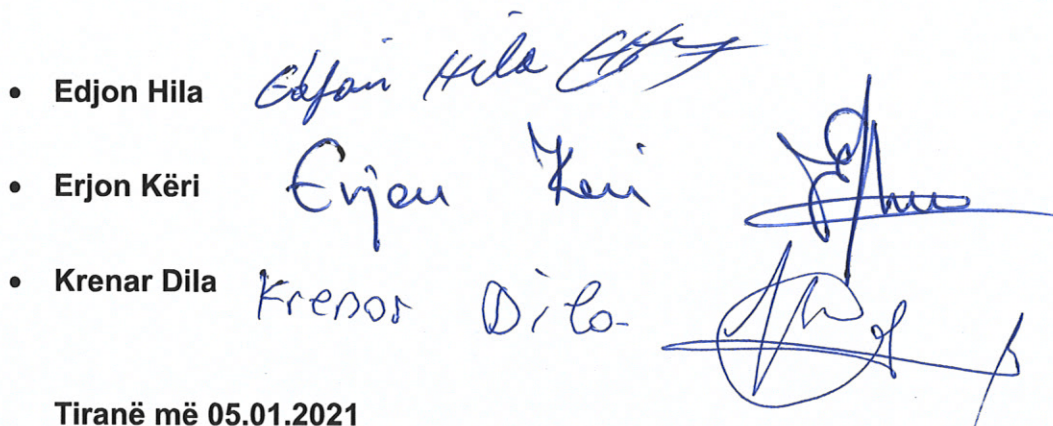 • Edjon Hila Edjon Hila
• Erjon Këri Erjon Keri
• Krenar Dila Krenar Dila
Tiranë më 05.01.2021